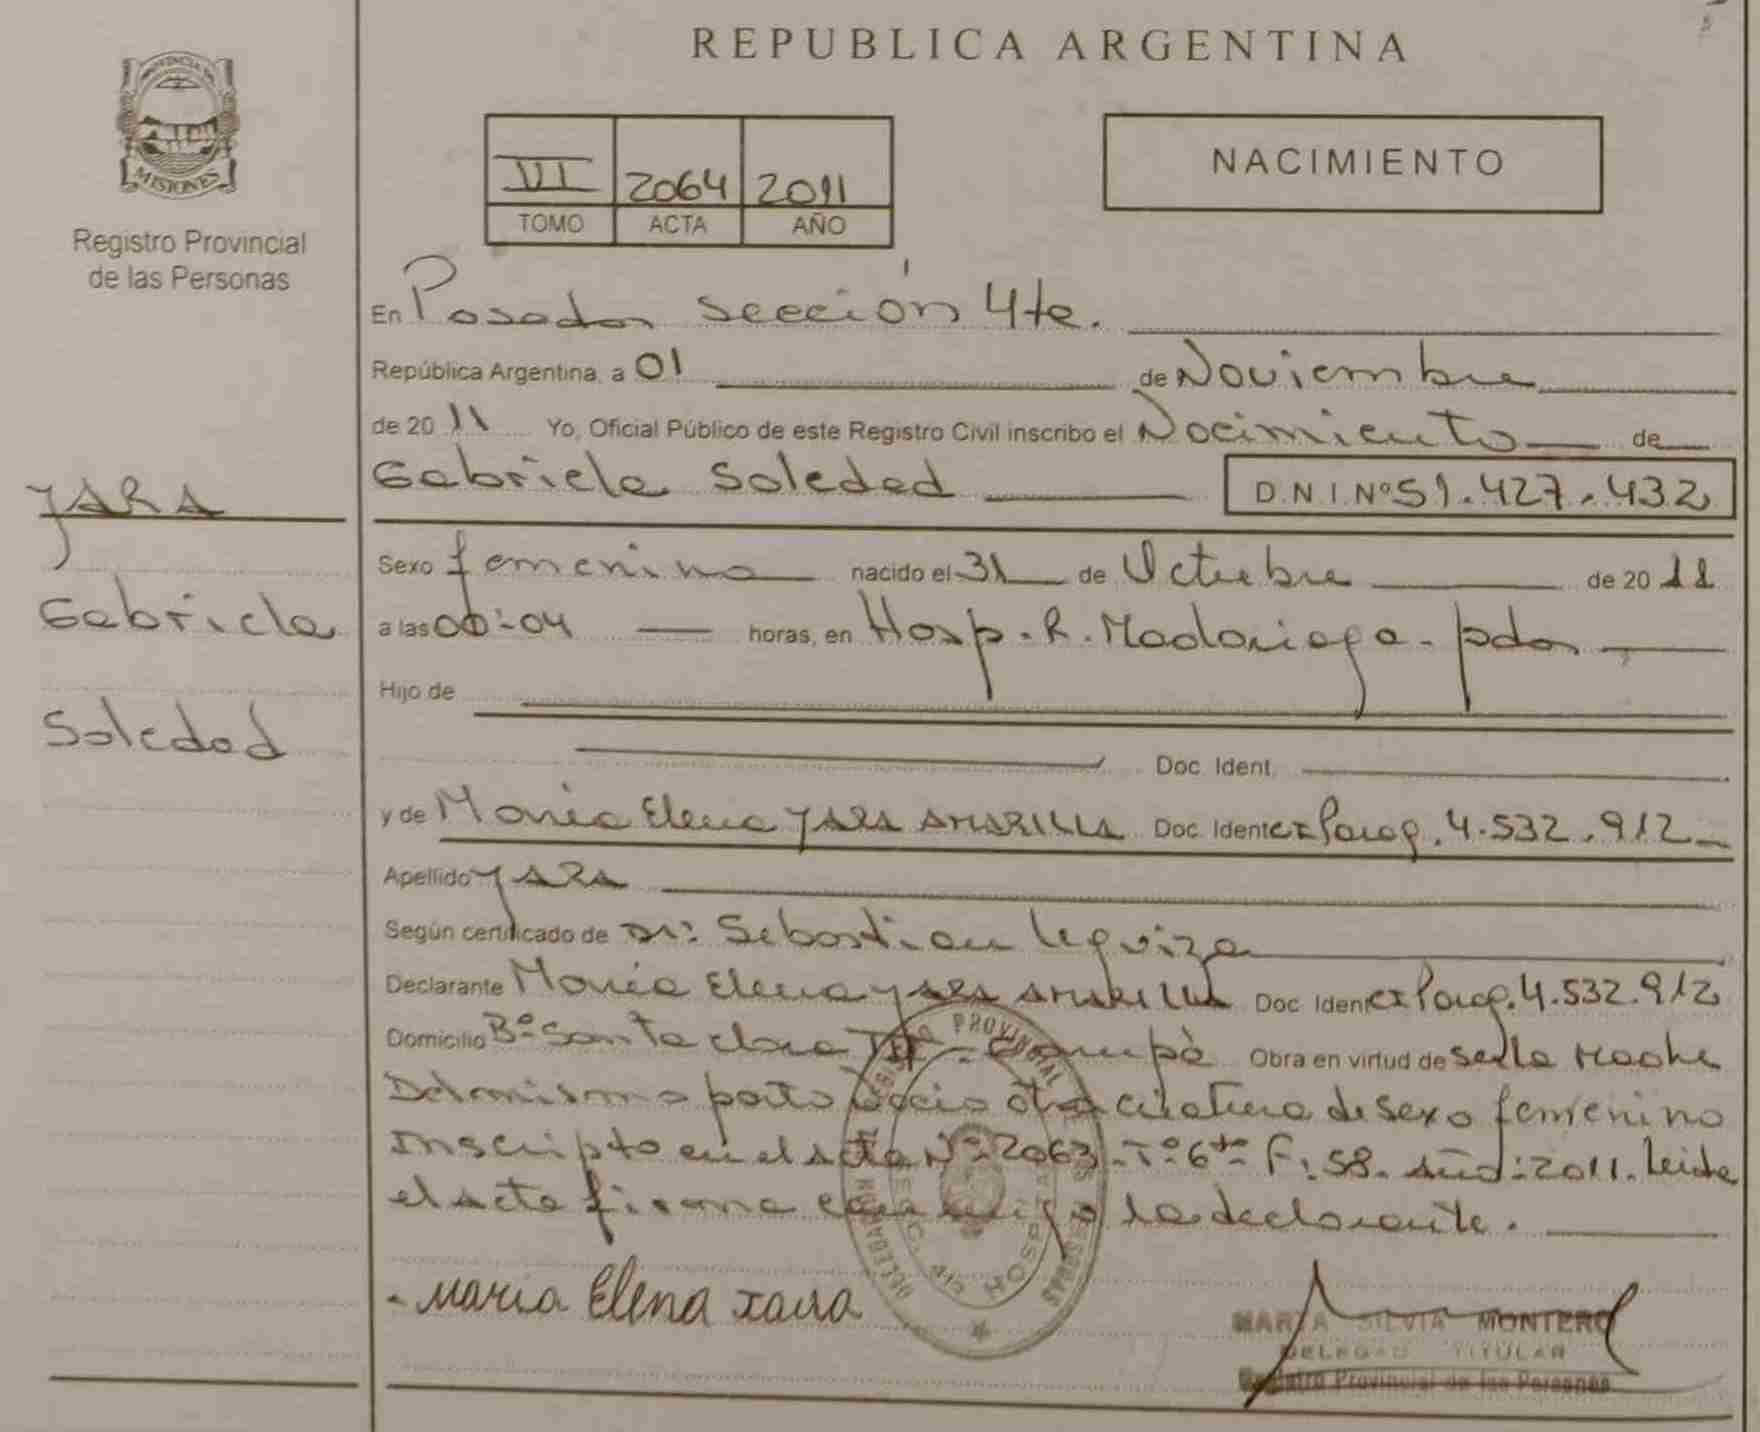 REPUBLICA ARGENTINA
PROVINCIA DE
MISIONES
Registro Provincial
de las Personas
VI 2064 2011
TOMO ACTA AÑO
NACIMIENTO
En Posadas sección 4ta.
República Argentina, a 01 de Noviembre
de 2011 Yo, Oficial Público de este Registro Civil inscribo el Nacimiento de
Gabriela Soledad D.N.I.Nº 51.427.432
YARA
Gabriela
Soledad
Sexo femenino nacido el 31 de Octubre de 2011
a las 00:04 horas, en Hosp. R. Madariaga - pdas
Hijo de
Doc. Ident.
y de María Elena YARA AMARILLA Doc. Ident. CI Parag. 4.532.912
Apellido YARA
Según certificado de Dr: Sebastian Leguiza
Declarante María Elena YARA AMARILLA Doc. Ident. CI Parag. 4.532.912
Domicilio Bº Santa Clara - Garupá Obra en virtud de ser la Madre
Del mismo parto nació otra criatura de sexo femenino
Inscripto en el acta Nº 2063 - Tº 6to - F: 58. Año: 2011. Leida
el acta firma conmigo la declarante.
Maria Elena Yara
REGISTRO PROVINCIAL DE LAS PERSONAS
DELEGACION
SECC. 4ta HOSPITAL
MARTA SILVIA MONTERO
DELEGADO TITULAR
Registro Provincial de las Personas